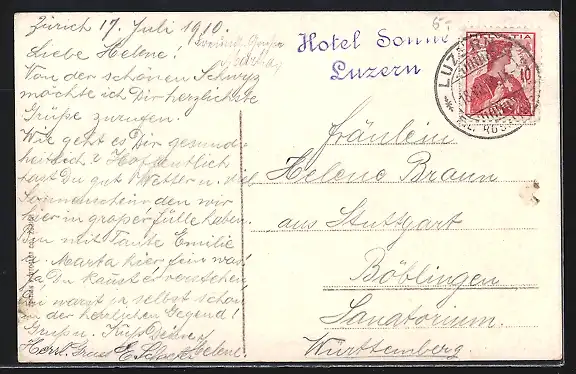 Zürich 17. Juli 1910.
Liebe Helene!
Von der schönen Schwyz
möchte ich Dir herzlichste
Grüße zurufen.
Wie geht es Dir gesund-
heitlich? Hoffentlich
hast Du gut Wetter u. viel
Sonnenschein den wir
hier in großer Fülle haben.
Bin mit Tante Emilie
u. Marta hier fein was
ja Du kannst es verstehen
Du warst ja selbst schon
in der herrlichen Gegend!
Gruß u. Kuß Deine
Helene.
Herzl. Gruss E.
5-
Hotel Sonne
Luzern
HELVETIA
10
LUZERN
Fräulein
Helene Braun
aus Stuttgart
Böblingen
Sanatorium.
Württemberg.